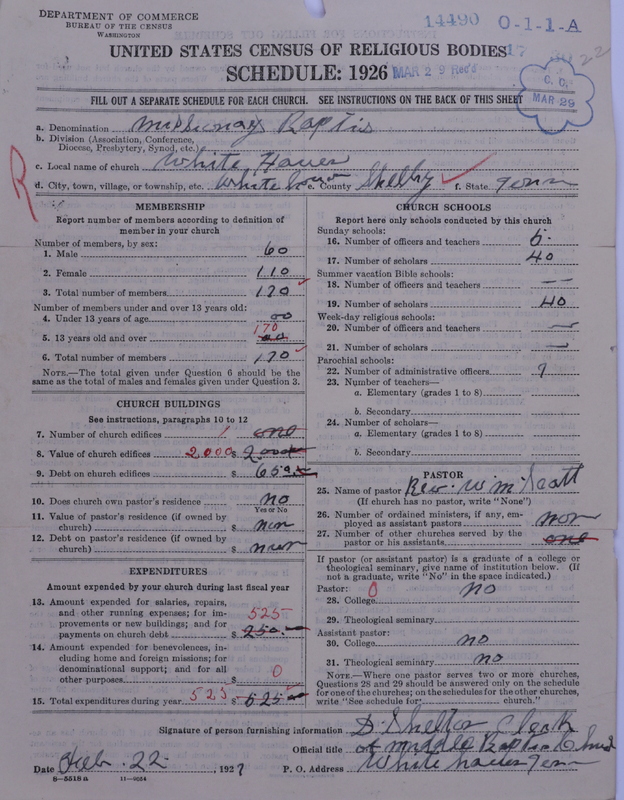 DEPARTMENT OF COMMERCE
BUREAU OF THE CENSUS
WASHINGTON
14490 O-1-1-A
UNITED STATES CENSUS OF RELIGIOUS BODIES
SCHEDULE: 1926
MAR 29 Rec'd
C. C.
MAR 29
22
FILL OUT A SEPARATE SCHEDULE FOR EACH CHURCH. SEE INSTRUCTIONS ON THE BACK OF THIS SHEET
R
a. Denomination Missionay Baptis
b. Division (Association, Conference,
Diocese, Presbytery, Synod, etc.)
c. Local name of church White Haves
d. City, town, village, or township, etc. White e. County Shelby f. State Tenn
MEMBERSHIP
Report number of members according to definition of
member in your church
Number of members, by sex:
1. Male 60
2. Female 110
3. Total number of members 170
Number of members under and over 13 years old:
4. Under 13 years of age 00
170
5. 13 years old and over
6. Total number of members 170
NOTE.—The total given under Question 6 should be the
same as the total of males and females given under Question 3.
CHURCH BUILDINGS
See instructions, paragraphs 10 to 12
7. Number of church edifices 1 one
8. Value of church edifices 2000 $ 2000
9. Debt on church edifices $ 65
10. Does church own pastor's residence no
Yes or No
11. Value of pastor's residence (if owned by
church) $ non
12. Debt on pastor's residence (if owned by
church) $ nun
EXPENDITURES
Amount expended by your church during last fiscal year
13. Amount expended for salaries, repairs,
and other running expenses; for im-
provements or new buildings; and for
payments on church debt 525 $ 250.
14. Amount expended for benevolences, in-
cluding home and foreign missions; for
denominational support; and for all
other purposes $ 0
15. Total expenditures during year 525 $ 625
CHURCH SCHOOLS
Report here only schools conducted by this church
Sunday schools:
16. Number of officers and teachers 6
17. Number of scholars 40
Summer vacation Bible schools:
18. Number of officers and teachers
19. Number of scholars 40
Week-day religious schools:
20. Number of officers and teachers
21. Number of scholars
Parochial schools:
22. Number of administrative officers 7
23. Number of teachers—
a. Elementary (grades 1 to 8)
b. Secondary
24. Number of scholars—
a. Elementary (grades 1 to 8)
b. Secondary
PASTOR
25. Name of pastor Rev. W m Scott
(If church has no pastor, write "None")
26. Number of ordained ministers, if any, em-
ployed as assistant pastors non
27. Number of other churches served by the
pastor or his assistants one
If pastor (or assistant pastor) is a graduate of a college or
theological seminary, give name of institution below. (If
not a graduate, write "No" in the space indicated.)
Pastor: 0
28. College no
29. Theological seminary
Assistant pastor:
30. College no
31. Theological seminary no
NOTE.—Where one pastor serves two or more churches,
Questions 28 and 29 should be answered only on the schedule
for one of the churches; on the schedules for the other churches,
write "See schedule for church."
Signature of person furnishing information D. Shelton Clerk
Official title of Baptis
Date Feb. 22, 1927 P. O. Address White Tenn
8—5518a 11—9084